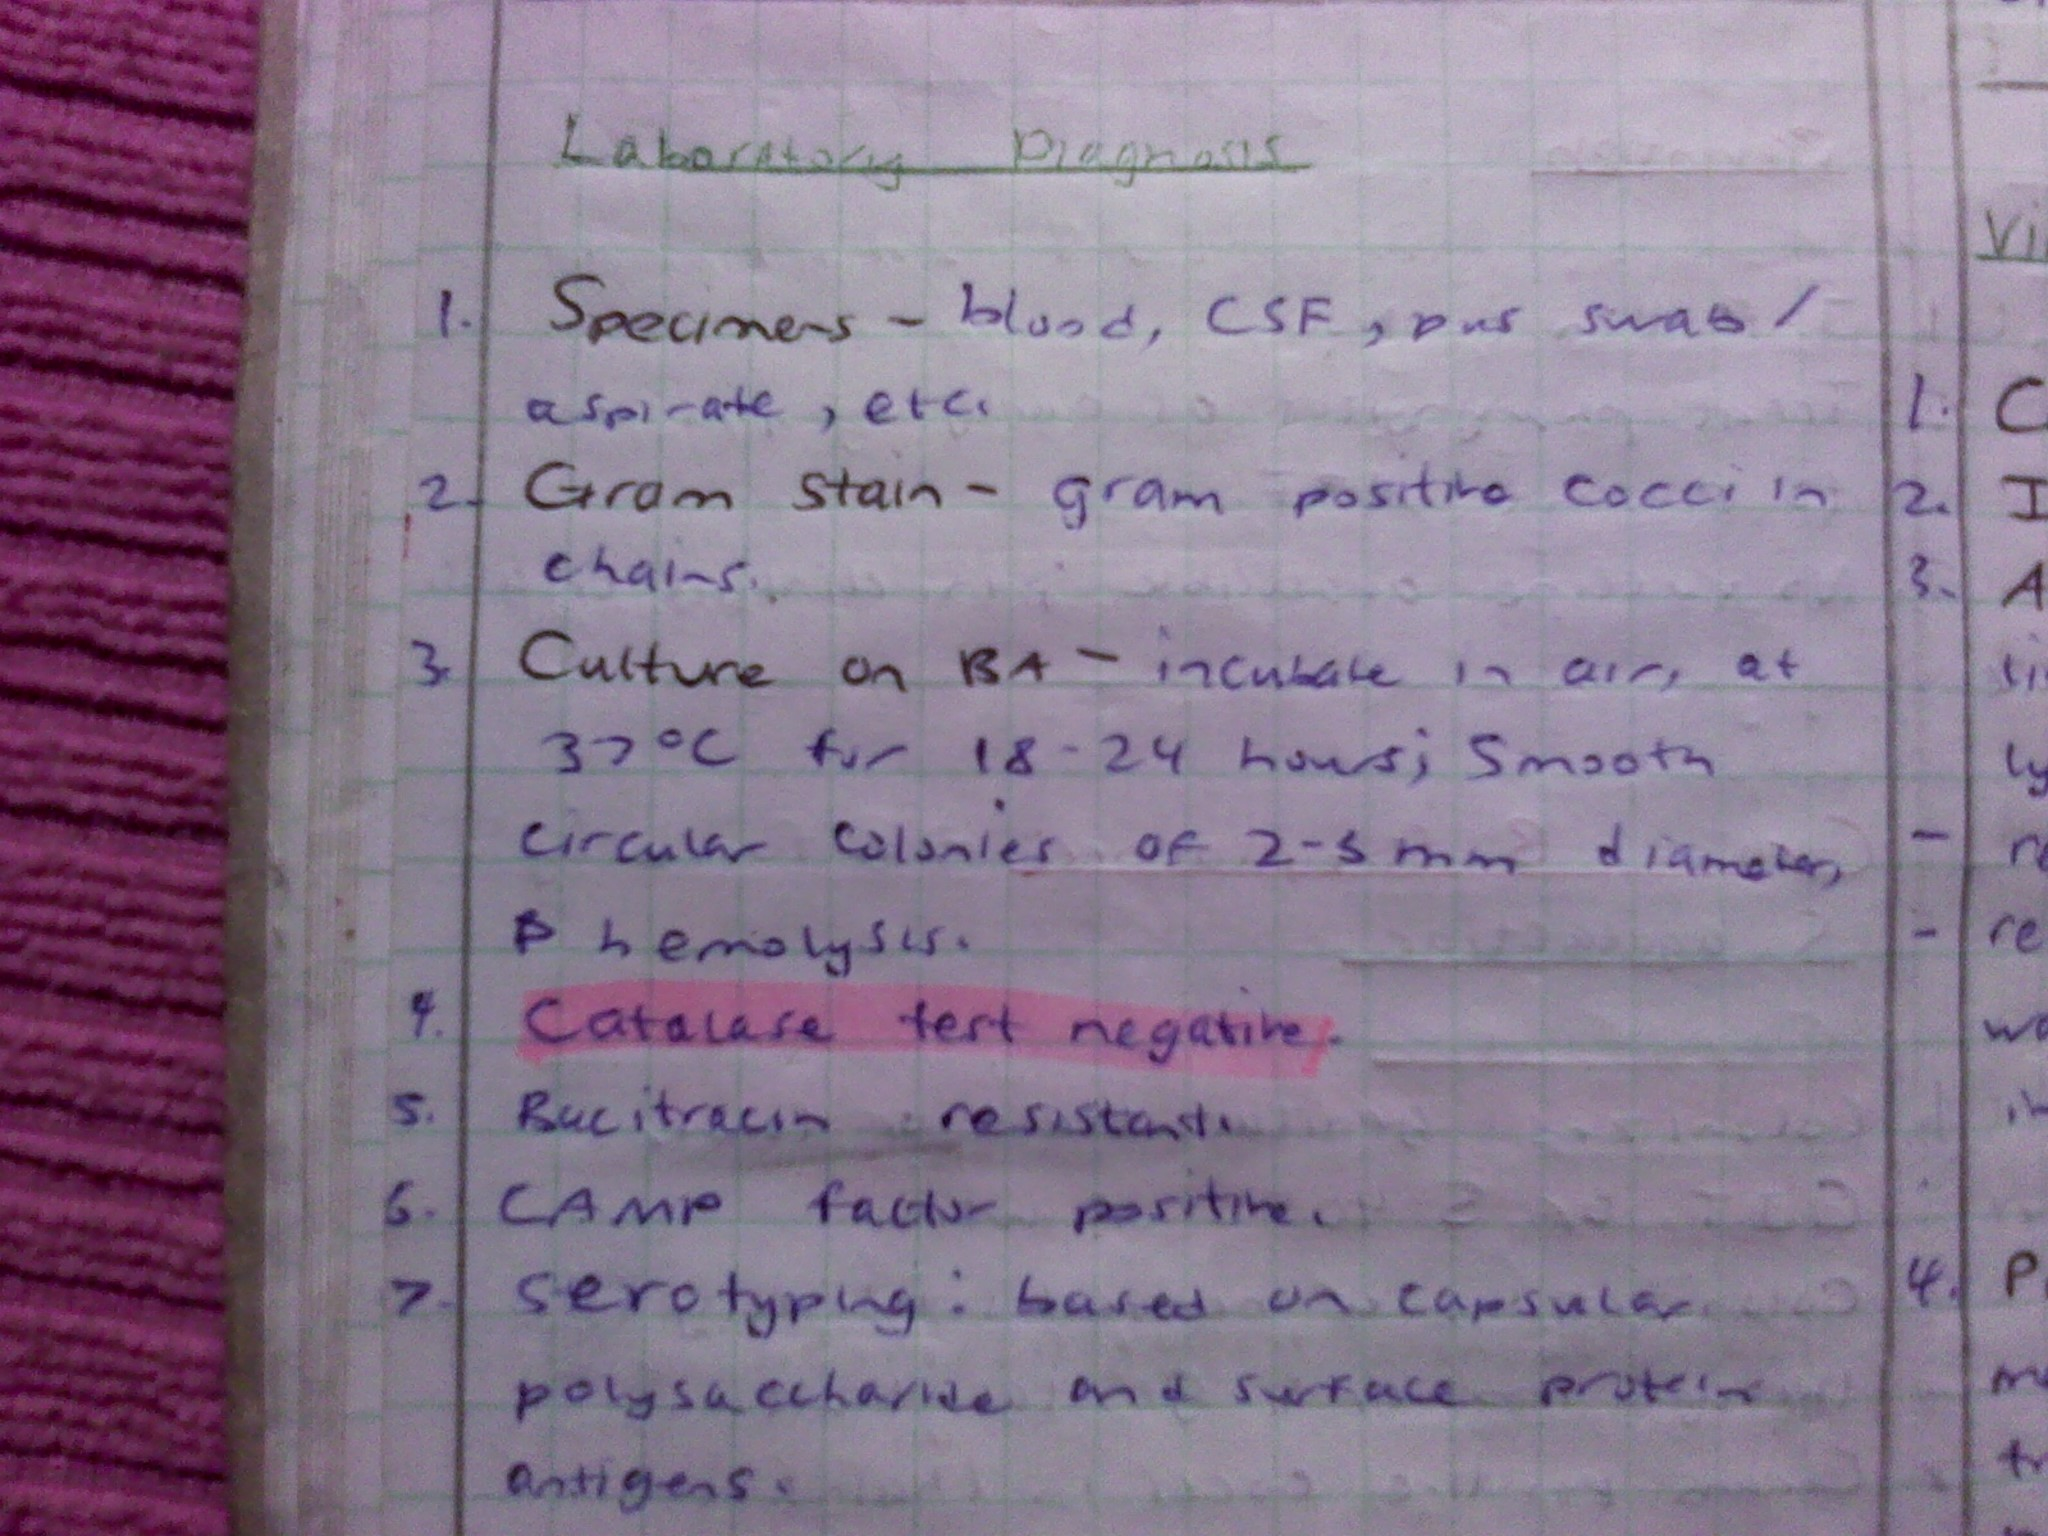 Laboratory Diagnosis
1. Specimens - blood, CSF, pus swab /
aspirate, etc.
2. Gram stain - gram positive cocci in
chains.
3. Culture on BA - incubate in air, at
37°C for 18-24 hours; Smooth
circular colonies of 2-3 mm diameter,
β hemolysis.
4. Catalase test negative.
5. Bacitracin resistant.
6. CAMP factor positive.
7. Serotyping: based on capsular
polysaccharide and surface protein
antigens.
Vi
1. C
2. I
3. A
ti
ly
- re
- re
wa
in
4. P
m
tr